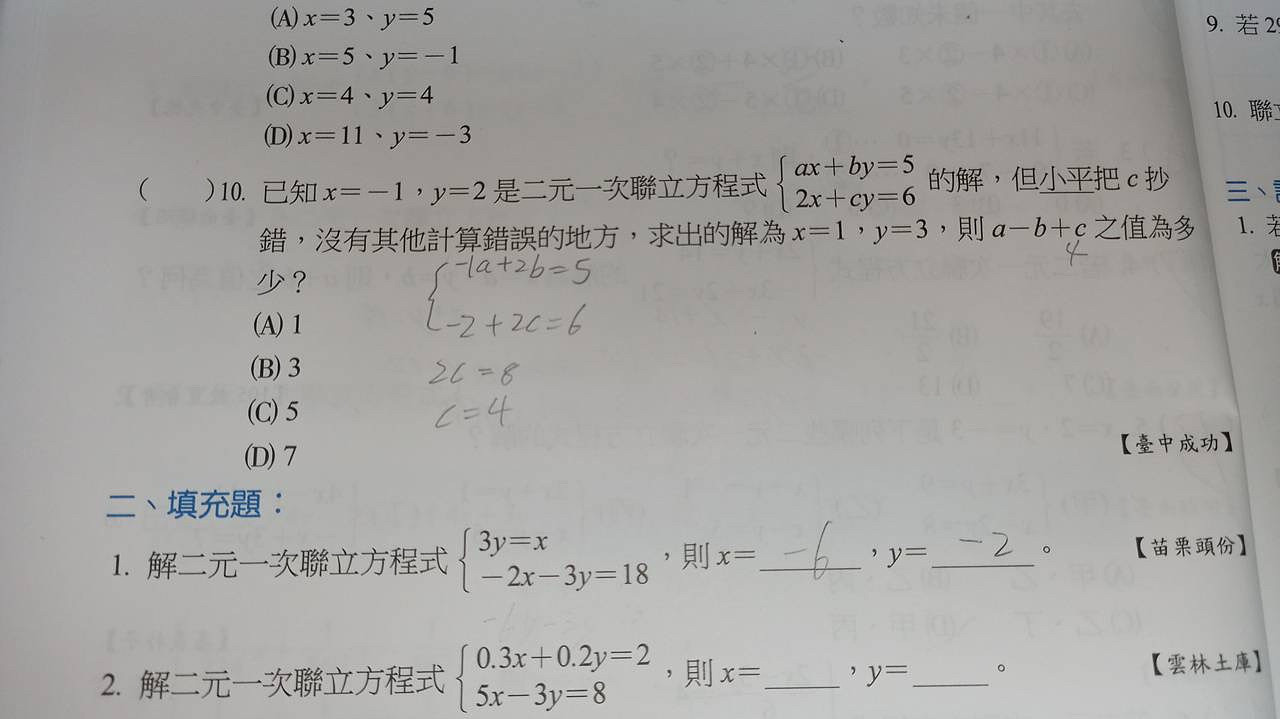 (A) x=3、y=5
(B) x=5、y=-1
(C) x=4、y=4
(D) x=11、y=-3
( )10. 已知 x=-1,y=2 是二元一次聯立方程式 { ax+by=5
2x+cy=6 的解,但小平把 c 抄
錯,沒有其他計算錯誤的地方,求出的解為 x=1,y=3,則 a-b+c 之值為多
4
少?
-1a+2b=5
-2+2c=6
2c=8
c=4
(A) 1
(B) 3
(C) 5
(D) 7
【臺中成功】
二、填充題:
1. 解二元一次聯立方程式 { 3y=x
-2x-3y=18 ,則 x= -6 ,y= -2 。 【苗栗頭份】
2. 解二元一次聯立方程式 { 0.3x+0.2y=2
5x-3y=8 ,則 x=____,y=____。 【雲林土庫】
9. 若 2
10. 聯
三、
1. 若